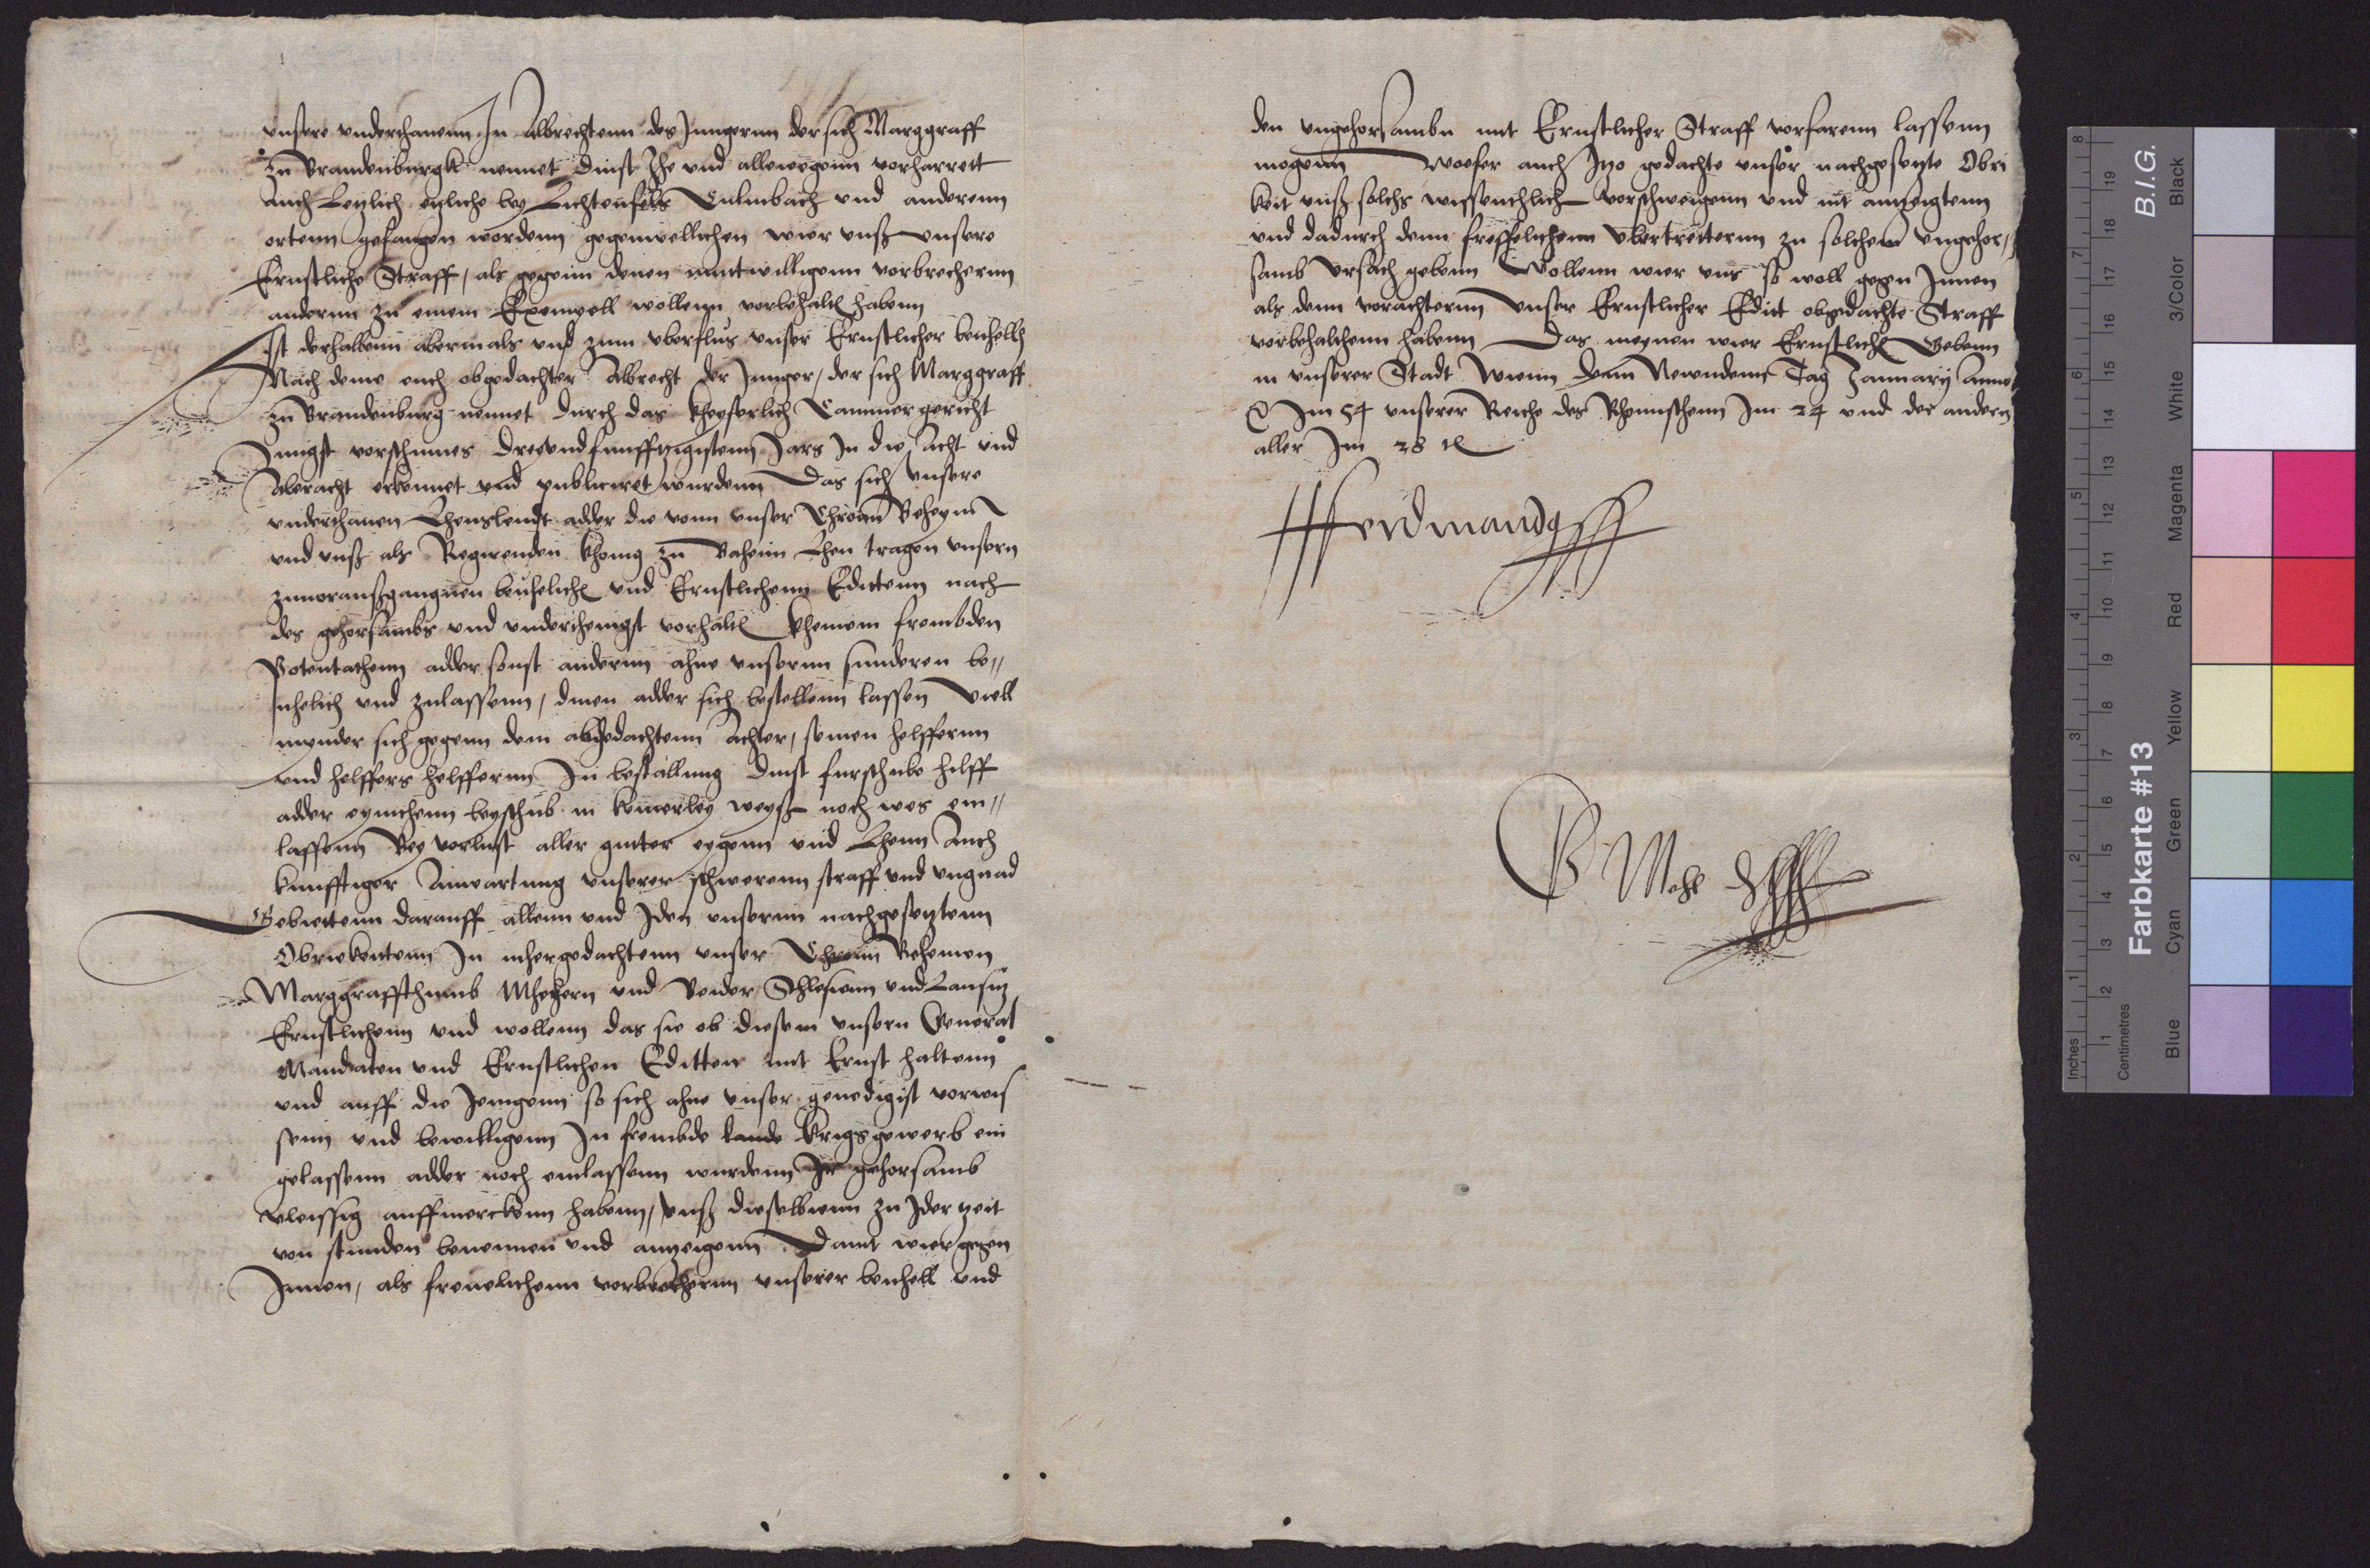 unsere underthanenn In Albrechtenn des Jungernn der sich Marggraff
zu Brandenburgk nennet dinst Ihe und allewegenn vorharrett
auch Letzlich etzliche bey Lichtenfels Culmbach und anderenn
ortenn gefangen wordenn gegenwellichen wier unß unsere
Ernstliche Straff, als gegenn denen muntwilligenn vorbrechernn
andernn zu einem Exempell wollenn vorbehaltt habenn
Ist derhalbenn abermals und zum uberflus unser Ernstlicher bevhellh
Nach deme euch obgedachter Albrecht der Junger, der sich Marggraff
zu Brandenburg nennet durch das kheyserlich Cammergericht
Jungst vorschinnes dreyundfunfftzigistenn Jars In die Acht und
Aberacht erkennet und publiciret wurdenn Das sich unsere
underthanen Lhenslendt adder die vonn unser Chronn Beheym
und unß als Regirenden khonig zu Behaim Lhen tragen unsern
zuvoraußgangnen beuhelich und Ernstlichenn Edittenn nach
des gehorsambs und underthenigst vorhaltt kheinem frembden
Potentathenn adder sonst andernn ahne unsernn sunderen be-
uhelich und zulassenn, dinen adder sich bestellenn lassen viell
mynder sich gegenn dem abgedachtenn Achter, seinen helffernn
und helffers helffernn In bestallung dinst furschube hilff
adder eynichenn beyschub in keinerley weyß noch wes ein-
lassenn Bey vorlust aller gutter eygenn und Lhenn Auch
kunfftiger Anwartung unserer schwerenn straff und ungnad
Gebiettenn darauff allenn und Iden unsernn nachgesetztenn
Obrickeitenn In mhergedachtenn unser Chronn Behemen
Marggraffthumb Mhehern und Beider Schlesienn und Lausitz
Ernstlichenn und wollenn das sie ob diesem unsern General
Mandaten und Ernstlichen Editten mit Ernst haltenn
und auff die Jenigenn so sich ahne unser genedigist vorwis
senn und bewilligenn In frembde lande krigsgewerb ein
gelassenn adder noch einlassenn wurdenn Ir gehorsamb
vleissig auffmerckenn habenn, unß dieselbenn zu Iderzeit
von stunden benennen und anzeigenn Damit wier gegen
Innen, als frevelichenn vorbrechernn unserer bevhell und
den ungehorsamben mit Ernstlicher Straff vorfarenn lassenn
mogenn Wo fer auch Itzo gedachte unser nachgesetzte Obri
keit unß solchs wissenthlich vorschweigenn und nit anzeigtenn
und dadurch denn freffelichenn Ubertretternn zu solchem ungehor-
samb Ursach gebenn Wollenn wier uns so woll gegen Innen
als denn vorachternn unser Ernstlicher Editt obgedachte Straff
vorbehalthenn habenn Das meynen wier Ernstlich Gebenn
in unserer Stadt Wienn denn Newndenn Tag January Anno
Im 54 unserer Reiche des Rhomischenn Im 24 und der andern
aller Im 28
Ferdinandq
Inches
Centimetres
1 2 3 4 5 6 7 8
1 2 3 4 5 6 7 8 9 10 11 12 13 14 15 16 17 18 19
Farbkarte #13
B.I.G.
Blue Cyan Green Yellow Red Magenta White 3/Color Black